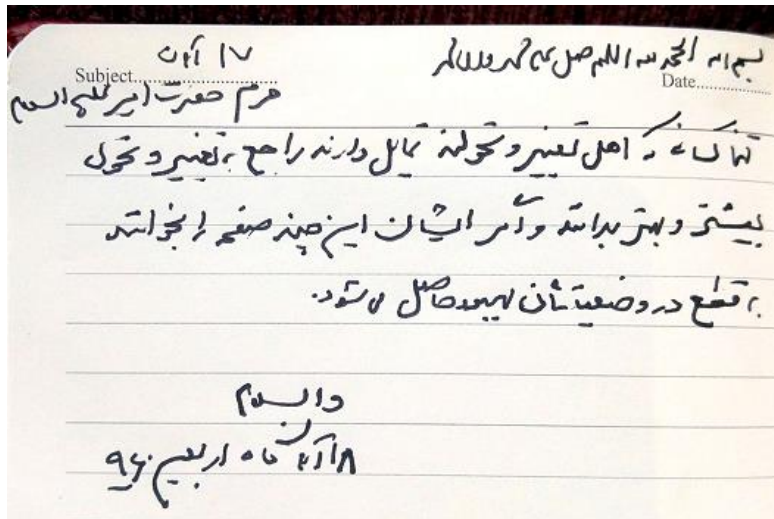 بسم الله الحمد لله اللهم صل علی محمد و آل محمد
۱۷ آبان
Subject
Date
حرم حضرت امیر علیه السلام
تنها کسانی که اهل تغییر و تحولند تمایل دارند راجع به تغییر و تحول
بیشتر و بهتر بدانند و اگر ایشان این چند صفحه را بخوانند
به قطع در وضعیتشان بهبود حاصل می شود.
والسلام
۱۸ آبان ماه اربعین ۹۶